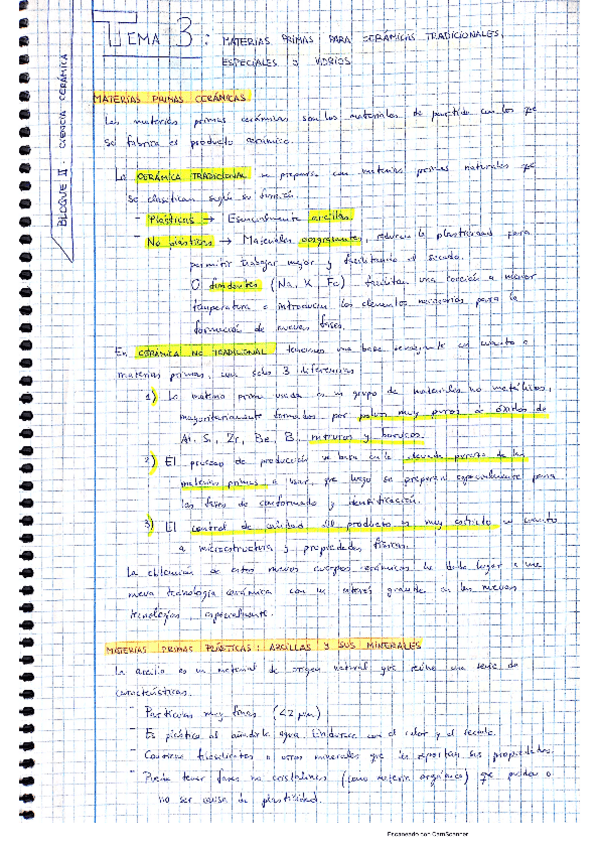 TEMA 3: MATERIAS PRIMAS PARA CERÁMICAS TRADICIONALES,
ESPECIALES Y VIDRIOS
BLOQUE II: CIENCIA CERÁMICA
MATERIAS PRIMAS CERÁMICAS
Las materias primas cerámicas son los materiales de partida con los que
se fabrica el producto cerámico.
La CERÁMICA TRADICIONAL se prepara con materias primas naturales que
se clasifican según su función.
- Plásticas → Esencialmente arcillas.
- No plásticas → Materiales desgrasantes, reducen la plasticidad para
permitir trabajar mejor y facilitando el secado.
O fundentes (Na, K, Fe) facilitan una cocción a menor
temperatura e introducen los elementos necesarios para la
formación de nuevas fases.
En CERÁMICA NO TRADICIONAL tenemos una base semejante en cuanto a
materias primas, con solo 3 diferencias
1) La materia prima usada es un grupo de materiales no metálicos,
mayoritariamente formados por polvos muy puros o óxidos de
Al, Si, Zr, Be, B, nitruros y boruros.
2) El proceso de producción se basa en la elevada pureza de las
materias primas a usar, que luego se preparan especialmente para
las fases de conformado y densificación.
3) El control de calidad del producto es muy estricto en cuanto
a microestructura y propiedades físicas.
La obtención de estos nuevos cuerpos cerámicos ha dado lugar a una
nueva tecnología cerámica con un interés grande en las nuevas
tecnologías, especialmente.
MATERIAS PRIMAS PLÁSTICAS: ARCILLAS Y SUS MINERALES
La arcilla es un material de origen natural que reúne una serie de
características.
- Partículas muy finas (<2 μm)
- Es plástica al añadirle agua. Endurece con el calor y el secado.
- Contiene filosilicatos u otros minerales que les aportan sus propiedades.
- Puede tener fases no cristalinas (como materia orgánica) que pueden o
no ser causa de plasticidad.
Escaneado con CamScanner